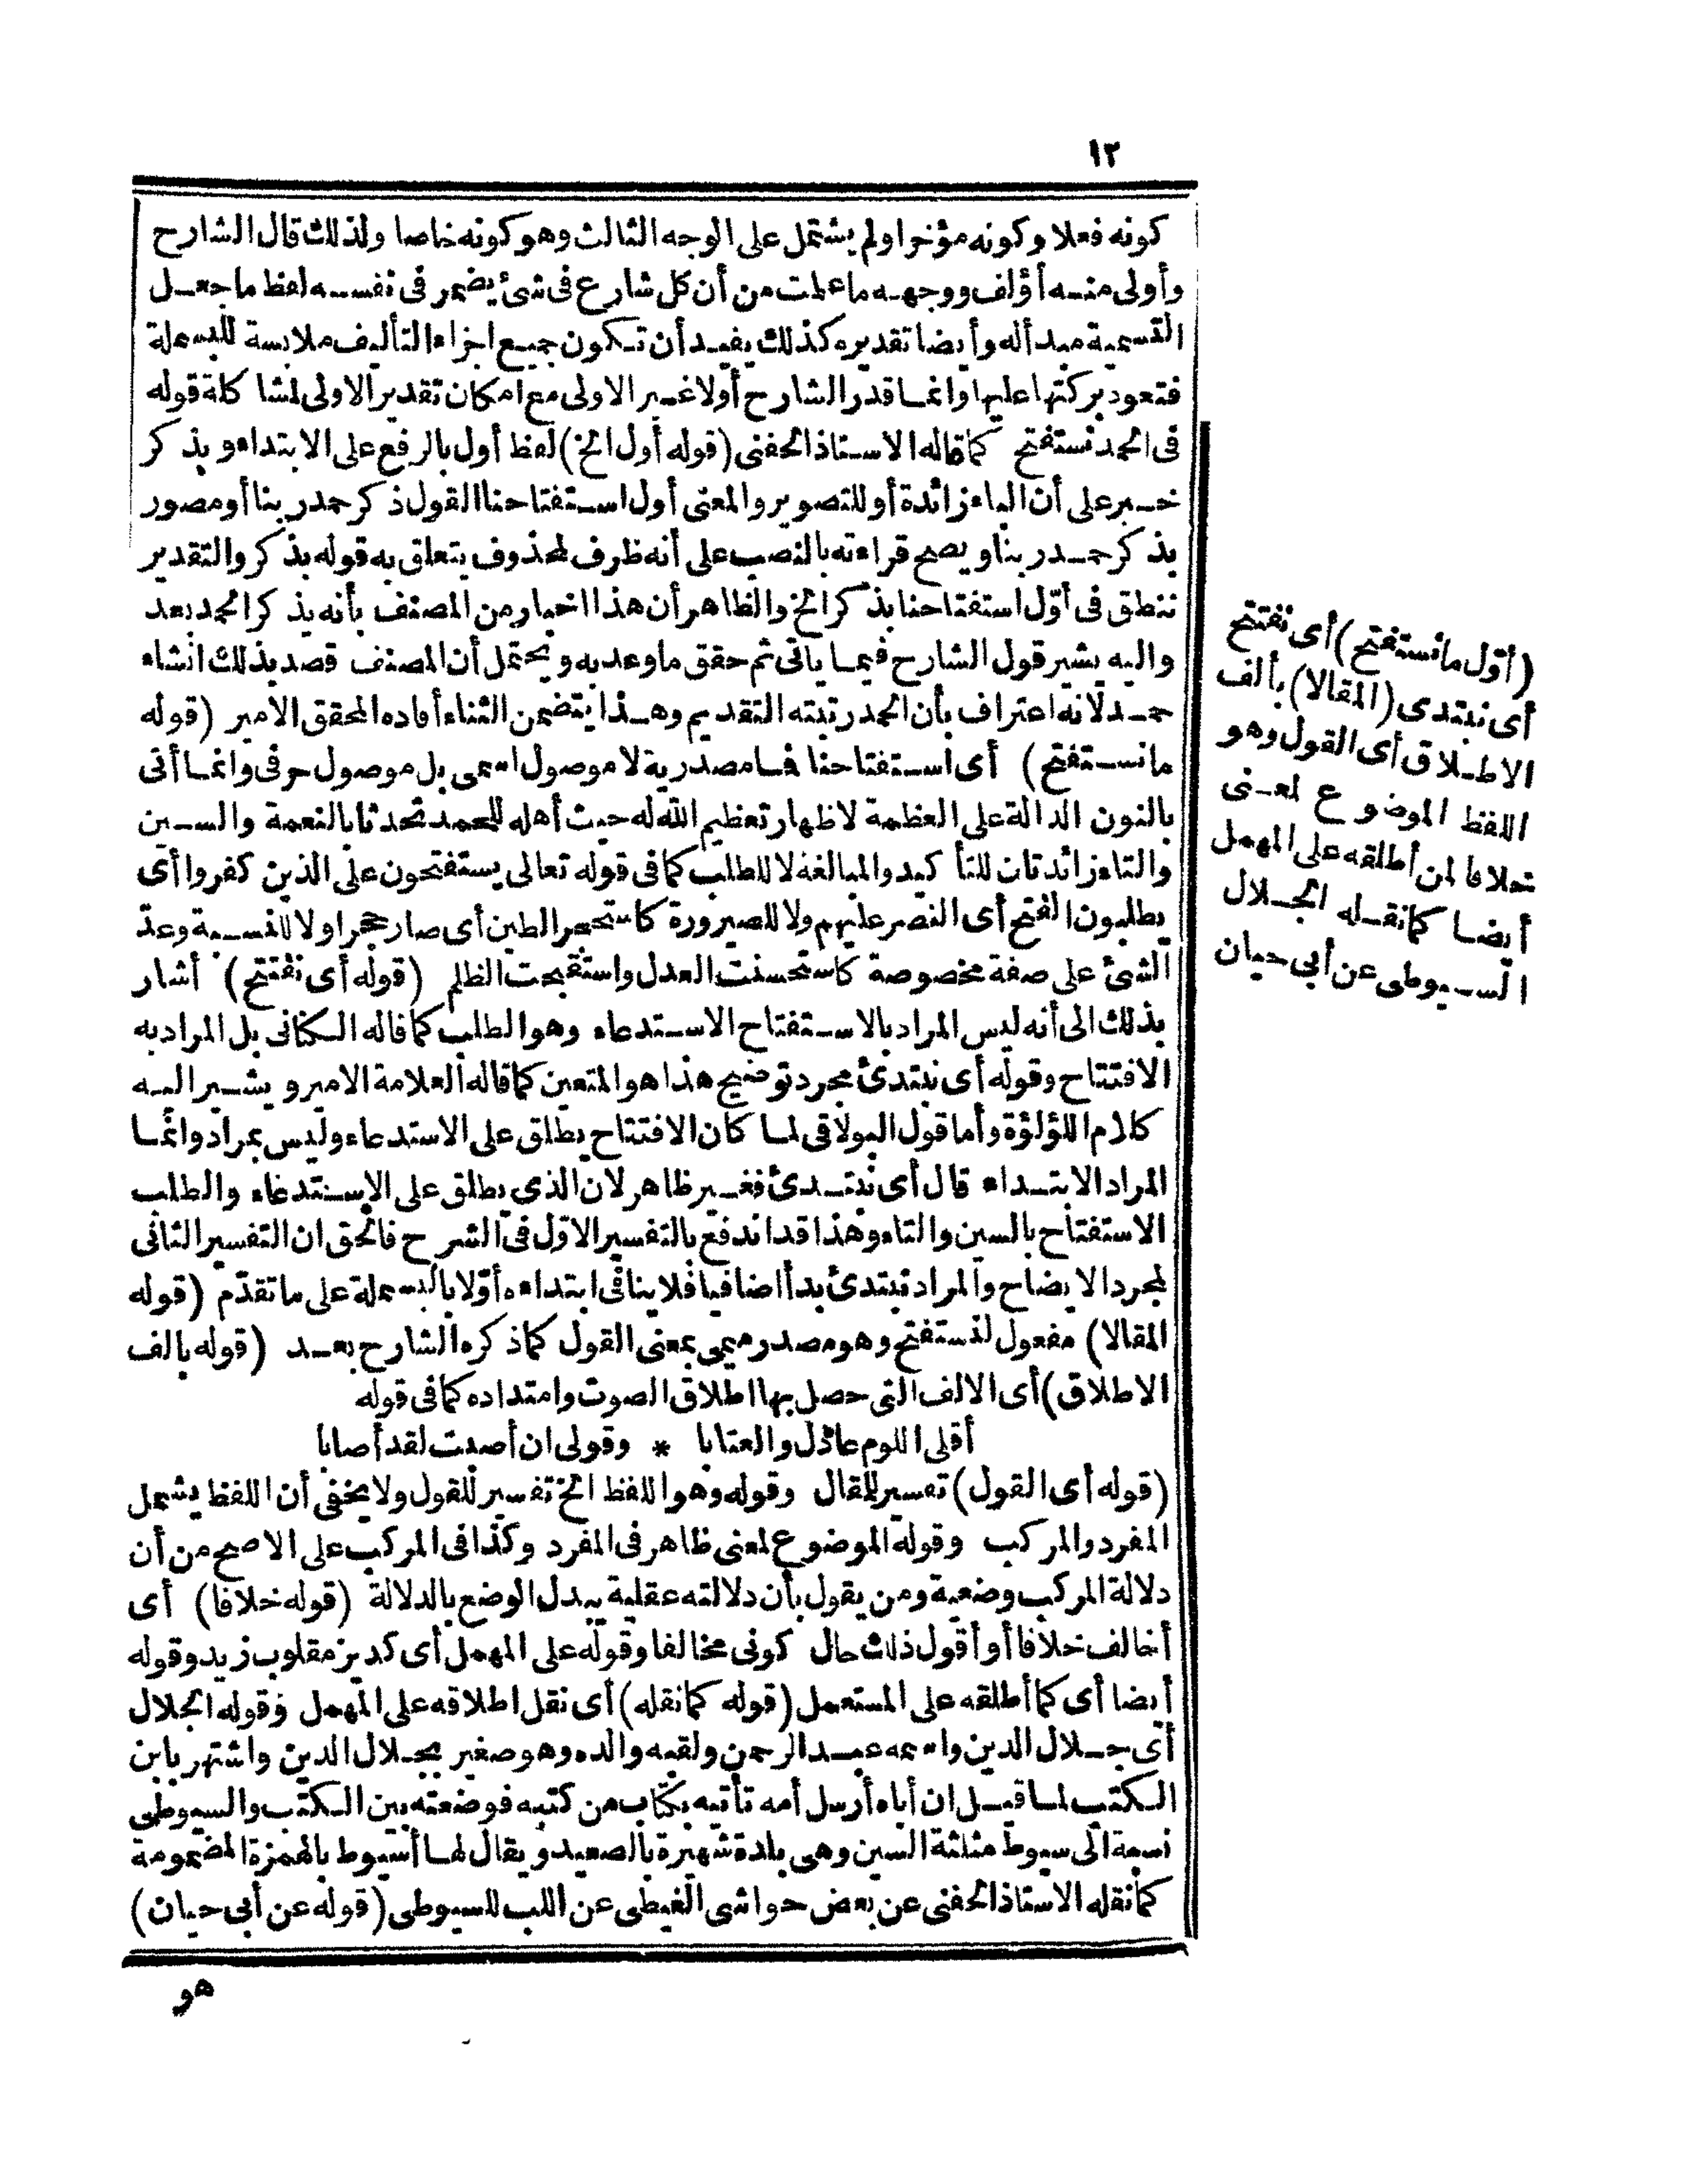 ١٢
كونه فعلا وكونه مؤخرا ولم يشتمل على الوجه الثالث وهو كونه خاصا ولذلك قال الشارح
وأولى منه أؤلف ووجهه ما علمت من أن كل شارع فى شئ يضمر فى نفسه لفظ ما جعل
التسمية مبدأ له وأيضا تقديره كذلك يفيد أن تكون جميع اجزاء التأليف ملابسة للبسملة
فتعود بركتها عليها وانما قدر الشارح أولا غير الاولى مع امكان تقدير الاولى لمشاكلة قوله
فى الحمد نستفتح كما قاله الاستاذ الحفنى (قوله أول الخ) لفظ أول بالرفع على الابتداء وبذكر
خبر على أن الباء زائدة أو للتصوير والمعنى أول استفتاحنا القول ذكر حمد ربنا أو مصور
بذكر حمد ربنا ويصح قراءته بالنصب على أنه ظرف لمحذوف يتعلق به قوله بذكر والتقدير
ننطق فى أوّل استفتاحنا بذكر الخ والظاهر أن هذا اخبار من المصنف بأنه يذكر الحمد بعد
واليه يشير قول الشارح فيما يأتى ثم حقق ما وعد به ويحتمل أن المصنف قصد بذلك انشاء
حمد لانه اعتراف بأن الحمد رتبته التقديم وهذا يتضمن الثناء أفاده المحقق الامير (قوله
ما نستفتح) أى استفتاحنا فما مصدرية لا موصول اسمى بل موصول حرفى وانما أتى
بالنون الدالة على العظمة لاظهار تعظيم الله له حيث أهله للحمد تحدثا بالنعمة والسين
والتاء زائدتان للتأكيد والمبالغة لا للطلب كما فى قوله تعالى يستفتحون على الذين كفروا أى
يطلبون الفتح أى النصر عليهم ولا للصيرورة كاستحجر الطين أى صار حجرا ولا للنسبة وعدّ
الشئ على صفة مخصوصة كاستحسنت العدل واستقبحت الظلم (قوله أى نفتتح) أشار
بذلك الى أنه ليس المراد بالاستفتاح الاستدعاء وهو الطلب كما قاله السكتانى بل المراد به
الافتتاح وقوله أى نبتدئ مجرد توضيح هذا هو المتعين كما قاله العلامة الامير ويشير اليه
كلام اللؤلؤة وأما قول البولاقى لما كان الافتتاح يطلق على الاستدعاء وليس بمراد وانما
المراد الابتداء قال أى نبتدئ فغير ظاهر لان الذى يطلق على الاستدعاء والطلب
الاستفتاح بالسين والتاء وهذا قد اندفع بالتفسير الاوّل فى الشرح فالحق ان التفسير الثانى
لمجرد الايضاح والمراد نبتدئ بدأ اضافيا فلا ينافى ابتداءه أوّلا بالبسملة على ما تقدّم (قوله
المقالا) مفعول لنستفتح وهو مصدر ميمى بمعنى القول كما ذكره الشارح بعد (قوله بالف
الاطلاق) أى الالف التى حصل بها اطلاق الصوت وامتداده كما فى قوله
أقلى اللوم عاذل والعتابا * وقولى ان أصبت لقد أصابا
(قوله أى القول) تفسير للمقال وقوله وهو اللفظ الخ تفسير للقول ولا يخفى أن اللفظ يشمل
المفرد والمركب وقوله الموضوع لمعنى ظاهر فى المفرد وكذا فى المركب على الاصح من أن
دلالة المركب وضعية ومن يقول بأن دلالته عقلية يبدل الوضع بالدلالة (قوله خلافا) أى
أخالف خلافا أو أقول ذلك حال كونى مخالفا وقوله على المهمل أى كديز مقلوب زيد وقوله
أيضا أى كما أطلقه على المستعمل (قوله كما نقله) أى نقل اطلاقه على المهمل وقوله الجلال
أى جلال الدين واسمه عبد الرحمن ولقبه والده وهو صغير بجلال الدين واشتهر بابن
الكتب لما قيل ان أباه أرسل أمه تأتيه بكتاب من كتبه فوضعته بين الكتب والسيوطى
نسبة الى سيوط مثلثة السين وهى بلدة شهيرة بالصعيد ويقال لها أسيوط بالهمزة المضمومة
كما نقله الاستاذ الحفنى عن بعض حواشى الغيطى عن اللب للسيوطى (قوله عن أبى حيان)
هو
(أوّل ما نستفتح) أى نفتتح
أى نبتدى (المقالا) بألف
الاطلاق أى القول وهو
اللفظ الموضوع لمعنى
خلافا لمن أطلقه على المهمل
أيضا كما نقله الجلال
السيوطى عن أبى حيان